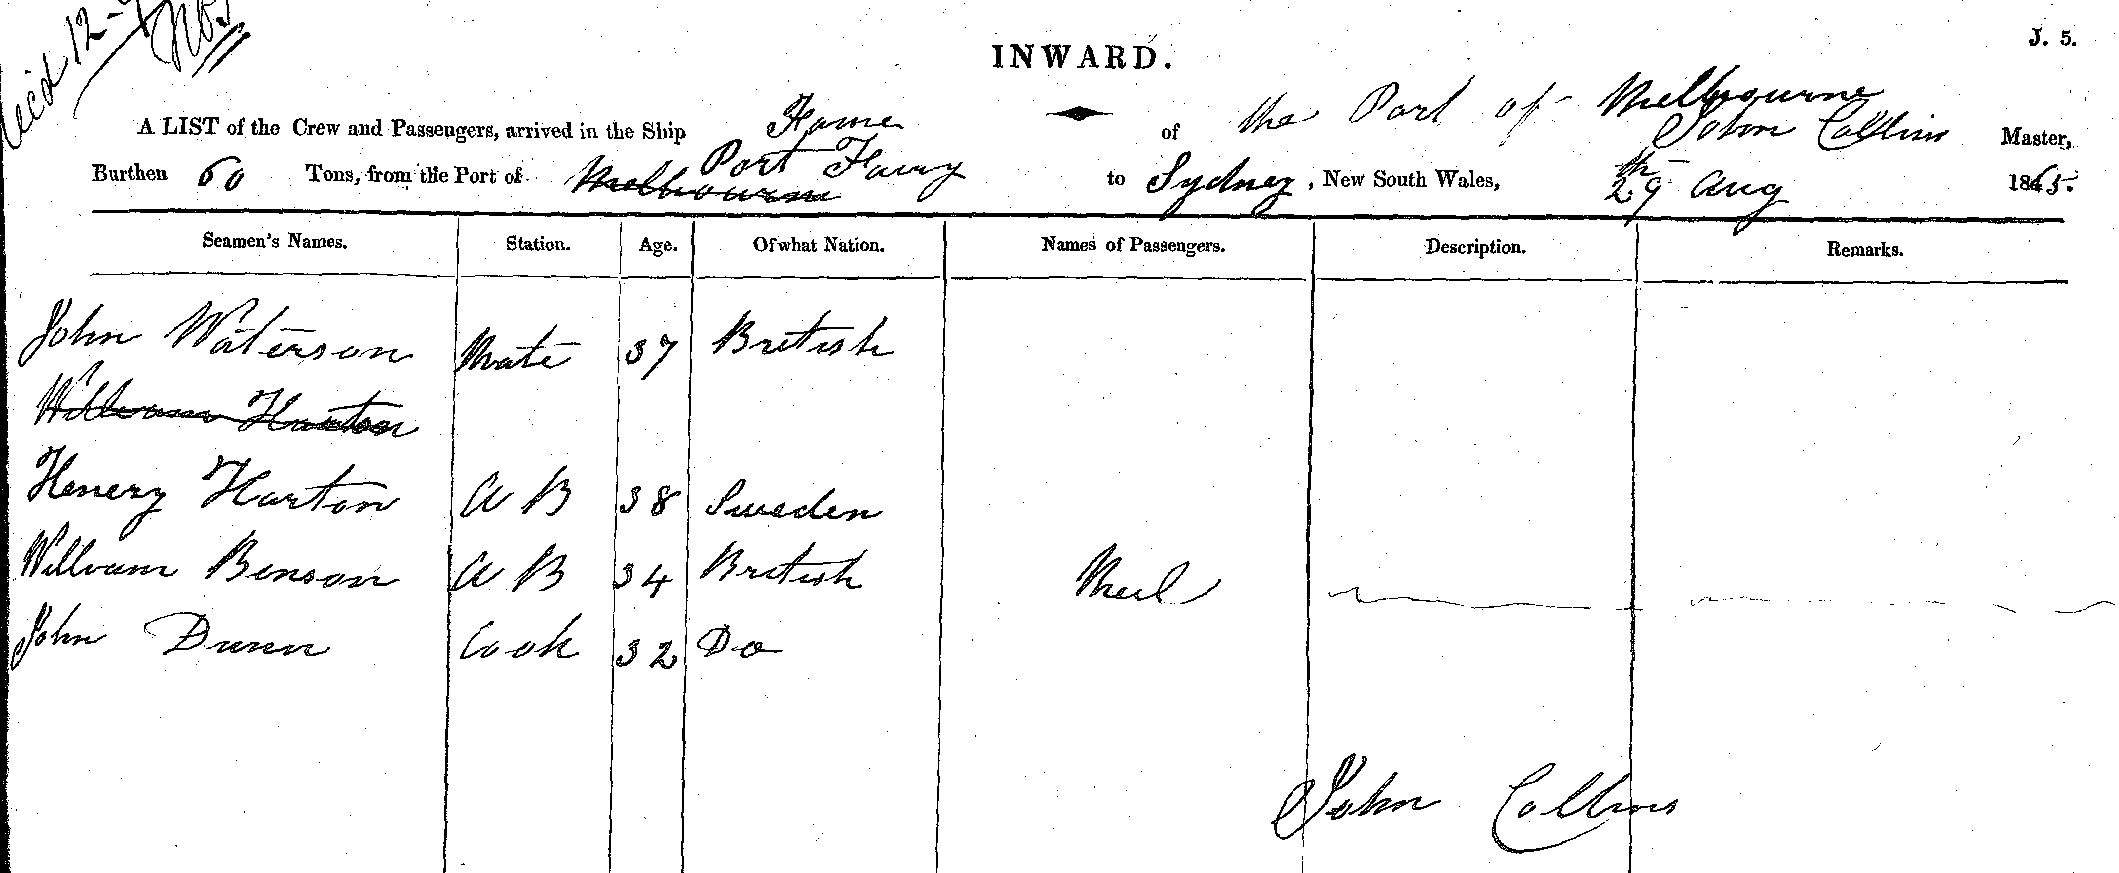 INWARD.
J. 5.
A LIST of the Crew and Passengers, arrived in the Ship Fame of the Port of Melbourne John Collins Master,
Burthen 60 Tons, from the Port of Melbourne Port Fairy to Sydney, New South Wales, 29th Aug 1865.
Seamen's Names. Station. Age. Of what Nation. Names of Passengers. Description. Remarks.
John Waterson Mate 37 British
William Harton
Henery Harton A B 38 Sweden
William Benson A B 34 British
John Dunn Cook 32 Do
John Collins